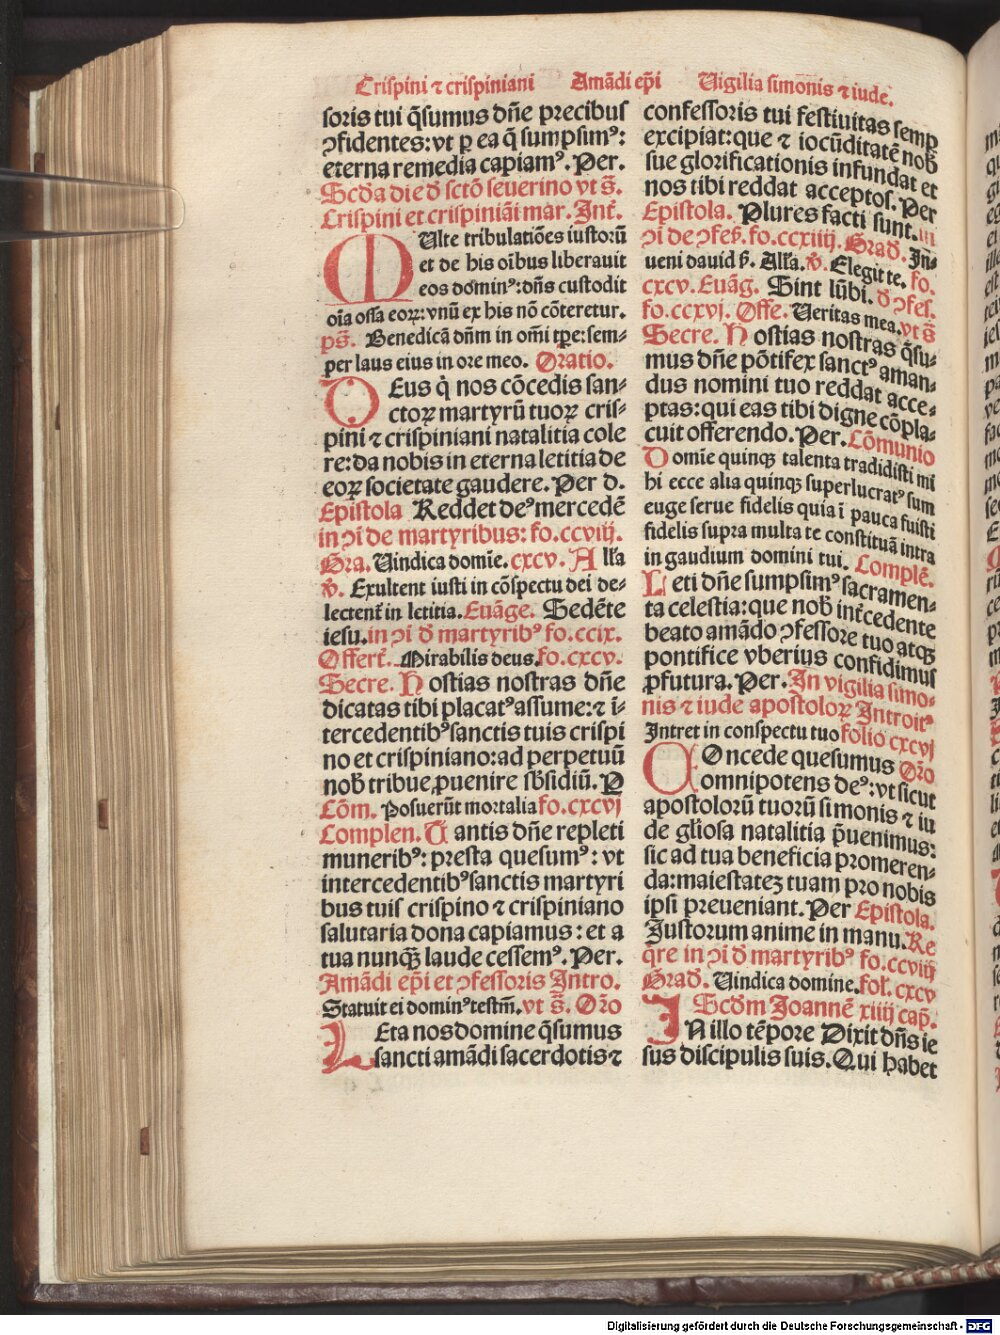 Crispini ⁊ crispiniani Amādi ep̄i Vigilia simonis ⁊ iude.
soris tui q̄sumus dn̄e precibus
ꝯfidentes: vt ꝑ ea q̄ sumpsimꝰ:
eterna remedia capiamꝰ. Per.
Scd̄a die d̄ sctō seuerino vt s̄.
Crispini et crispiniāi mar. Int̄.
MUlte tribulatiōes iustorū
et de his oībus liberauit
eos dominꝰ: dn̄s custodit
oīa ossa eoꝝ: vnū ex his nō cōteretur.
ps̄. Benedicā dn̄m in om̄i tꝑe: sem-
per laus eius in ore meo. Oratio.
DEus q̄ nos cōcedis san-
ctoꝝ martyrū tuoꝝ cris-
pini ⁊ crispiniani natalitia cole
re: da nobis in eterna letitia de
eoꝝ societate gaudere. Per d.
Epistola Reddet deꝰ mercedē
in ꝯi de martyribus: fo. ccviij.
Gra. Uindica domīe. cxcv. Alla
v̄. Exultent iusti in cōspectu dei de-
lectent̄ in letitia. Euāge. Sedēte
iesu. in ꝯi d̄ martyribꝰ fo. ccix.
Offert̄. Mirabilis deus. fo. cxcv.
Secre. Hostias nostras dn̄e
dicatas tibi placatꝰ assume: ⁊ ī-
tercedentibꝰ sanctis tuis crispi
no et crispiniano: ad perpetuū
nob̄ tribue ꝓuenire sb̄sidiū. P
Cōm. Posuerūt mortalia fo. cxcvj
Complen. Cantis dn̄e repleti
muneribꝰ: presta quesumꝰ: vt
intercedentibꝰ sanctis martyri
bus tuis crispino ⁊ crispiniano
salutaria dona capiamus: et a
tua nunqꝫ laude cessemꝰ. Per.
Amādi ep̄i et ꝯfessoris Intro.
Statuit ei dominꝰ testm̄. vt s̄. Or̄o
LEta nos domine q̄sumus
sancti amādi sacerdotis ⁊
confessoris tui festiuitas semꝑ
excipiat: que ⁊ iocūditatē nob̄
sue glorificationis infundat et
nos tibi reddat acceptos. Per
Epistola. Plures facti sunt. in
ꝯi de ꝯfes̄. fo. ccxiiij. Grad̄. In-
ueni dauid s̄. Alla. v̄. Elegit te. fo.
cxcv. Euāg. Sint lūbi. d̄ ꝯfes.
fo. ccxvj. Offe. Ueritas mea. vt s̄
Secre. Hostias nostras q̄su-
mus dn̄e pōtifex sanctꝰ aman-
dus nomini tuo reddat acce-
ptas: qui eas tibi digne cōpla-
cuit offerendo. Per. Cōmunio
Domīe quinqꝫ talenta tradidisti mi
hi ecce alia quinqꝫ superlucratꝰ sum
euge serue fidelis quia ī pauca fuisti
fidelis supra multa te constituā intra
in gaudium domini tui. Complē.
Leti dn̄e sumpsimꝰ sacramen-
ta celestia: que nob̄ int̄cedente
beato amādo ꝯfessore tuo atqꝫ
pontifice vberius confidimus
ꝓfutura. Per. In vigilia simo-
nis ⁊ iude apostoloꝝ Introitꝰ
Intret in conspectu tuo folio cxcvj
COncede quesumus Or̄o
omnipotens deꝰ: vt sicut
apostolorū tuorū simonis ⁊ iu
de gl̄iosa natalitia p̄uenimus:
sic ad tua beneficia promeren-
da: maiestateꝫ tuam pro nobis
ipsi preueniant. Per Epistola.
Justorum anime in manu. Re
q̄re in ꝯi d̄ martyribꝰ fo. ccviij
Grad̄. Uindica domine. fol. cxcv
Scd̄m Joannē xiiij cap̄.
IN illo tēpore Dixit dn̄s ie
sus discipulis suis. Qui habet
Digitalisierung gefördert durch die Deutsche Forschungsgemeinschaft - DFG